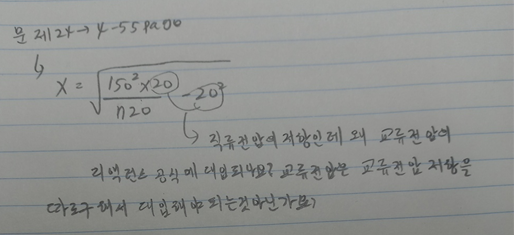 문제24 → 4-55page
X = √(150² × 20 / 720 - 20²)
직류전압의 저항인데 왜 교류전압의
리액턴스 공식에 대입되나요? 교류전압은 교류전압 저항을
따로구해서 대입해야 되는것아닌가요?